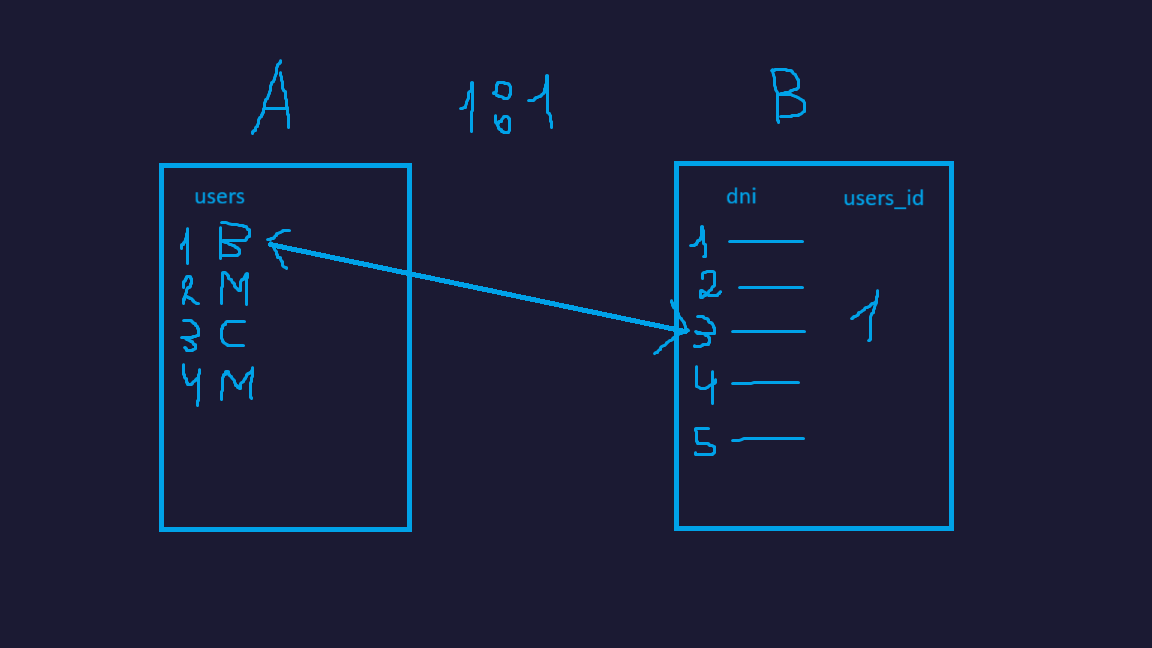 A 1:1 B
users
1 B
2 M
3 C
4 M
dni users_id
1
2
3 1
4
5